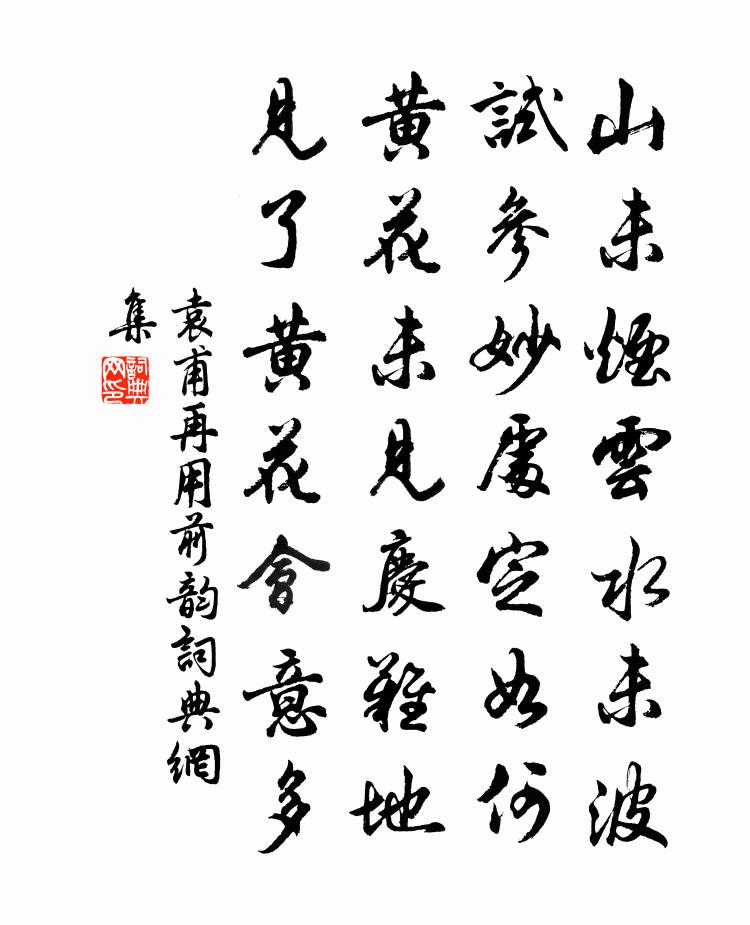 山未煙雲水未波
試參妙處定如何
黄花未見慶難地
見了黄花會意多
袁甫再用前韵詞典網
集
詞典网印